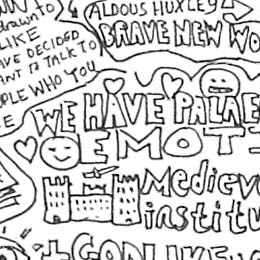 drawn to
LIKE
HAVE DECIDED
WANT TO TALK TO
PEOPLE WHO YOU
ALDOUS HUXLEY
BRAVE NEW WO
WE HAVE PALAE
EMOTI
Mediev
institu
GODLIKE